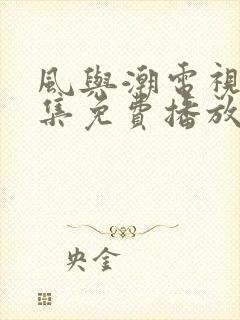 風與潮電視
集免費播放
央金